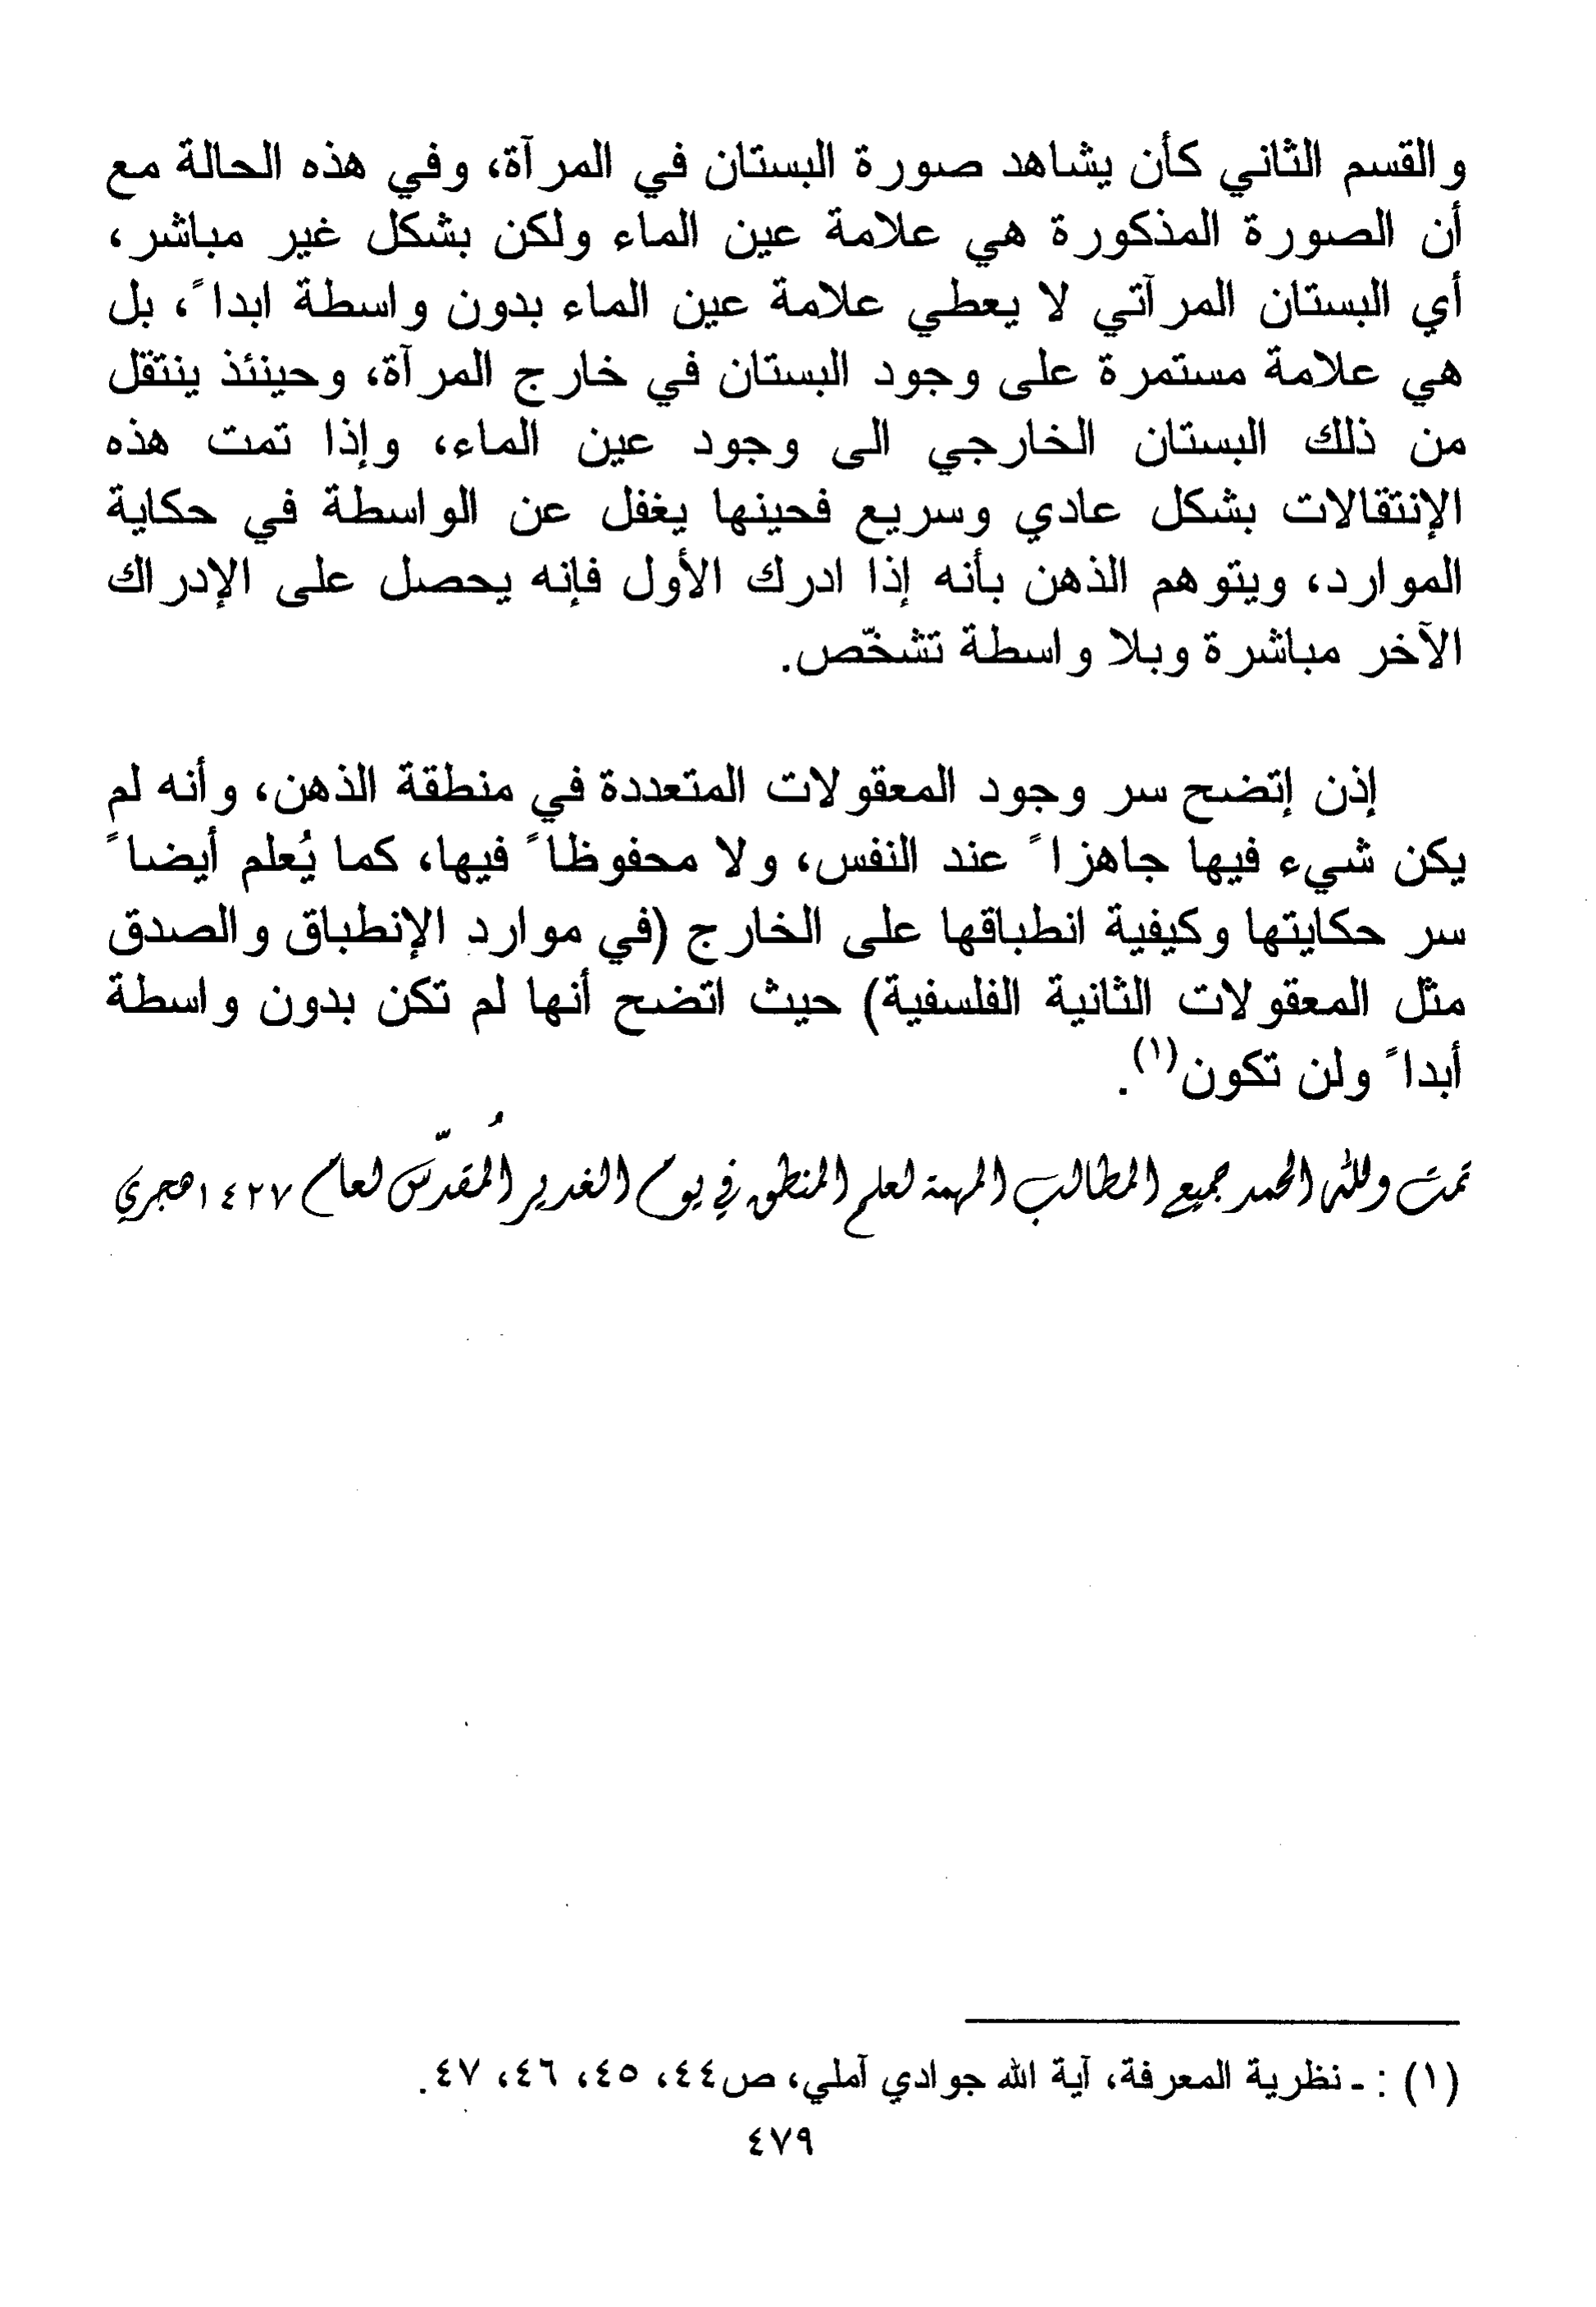 والقسم الثاني كأن يشاهد صورة البستان في المرآة، وفي هذه الحالة مع
أن الصورة المذكورة هي علامة عين الماء ولكن بشكل غير مباشر،
أي البستان المرآتي لا يعطي علامة عين الماء بدون واسطة ابداً، بل
هي علامة مستمرة على وجود البستان في خارج المرآة، وحينئذ ينتقل
من ذلك البستان الخارجي الى وجود عين الماء، وإذا تمت هذه
الإنتقالات بشكل عادي وسريع فحينها يغفل عن الواسطة في حكاية
الموارد، ويتوهم الذهن بأنه إذا ادرك الأول فإنه يحصل على الإدراك
الآخر مباشرة وبلا واسطة تشخّص.
إذن إتضح سر وجود المعقولات المتعددة في منطقة الذهن، وأنه لم
يكن شيء فيها جاهزاً عند النفس، ولا محفوظاً فيها، كما يُعلم أيضاً
سر حكايتها وكيفية انطباقها على الخارج (في موارد الإنطباق والصدق
مثل المعقولات الثانية الفلسفية) حيث اتضح أنها لم تكن بدون واسطة
أبداً ولن تكون(١).
تمت وللّه الحمد جميع المطالب المهمة لعلم المنطق في يوم الغدير المُقدّس لعام ١٤٢٧هجري
(١) :ـ نظرية المعرفة، آية الله جوادي آملي، ص٤٤، ٤٥، ٤٦، ٤٧.
٤٧٩